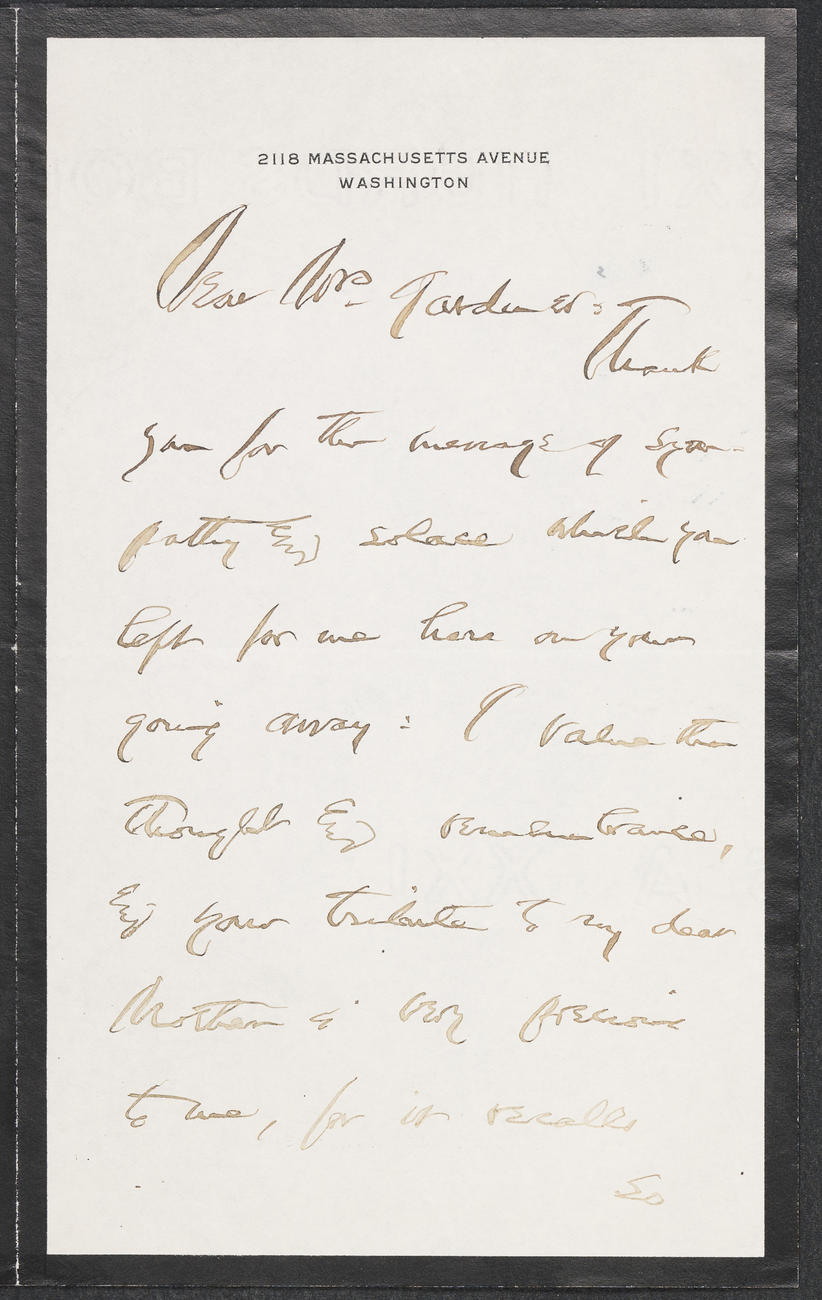 2118 MASSACHUSETTS AVENUE
WASHINGTON
Dear Mrs. Gardner:
Thank
you for the message of sym-
pathy & solace which you
left for me here on your
going away: I value the
thought & remembrance,
& your tribute to my dear
Mother is very precious
to me, for it recalls
so